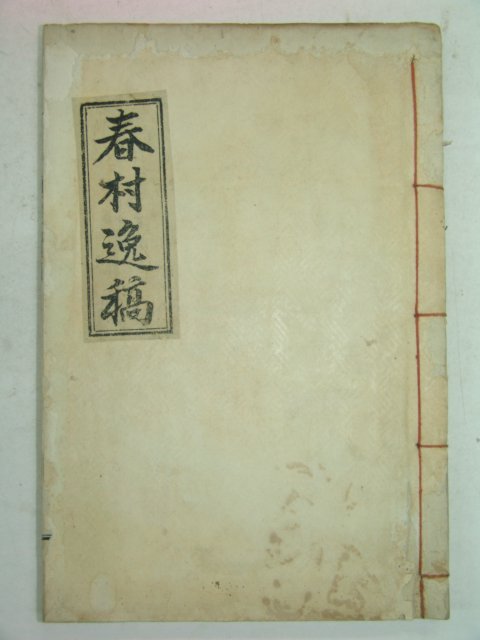 春村逸稿